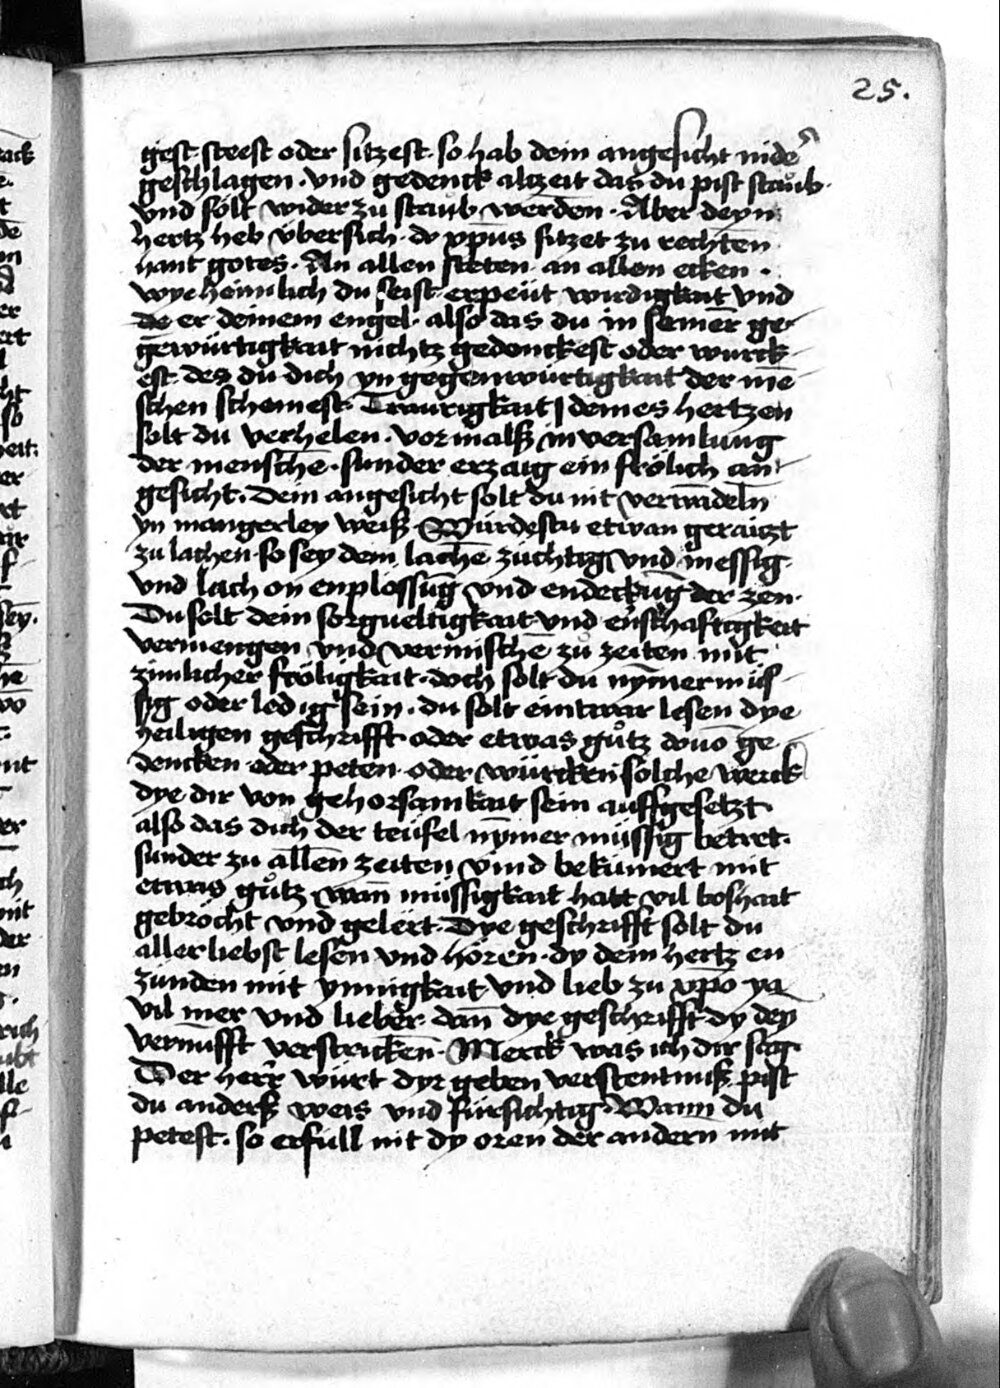 25.
gest steest oder sitzest · so hab dein angesicht nideꝰ
geschlagen · vnd gedenck alzeit das du pist staůb ·
vnd solt wider zu staůb werden · Aber deyn
hertz heb vbersich · do xp̄us sitzet zu rechten
hant gotes · An allen steten an allen ecken ·
wye heimlich du seist erpeüt wirdigkait vnd
er deinem engel · also das du in seineꝛ̄ ge-
genwürtigkait nichtz gedenckest oder wurck-
est des du dich yn gegenwürtigkait der me̅
schen schemest · Traurigkait deines hertzen
solt du verhelen · vormalß in versamlung
der mensche̅ · sunder erzaig ein frölich an-
gesicht · Dein angesicht solt du nit verwa̅deln
yn mangerley weiß · Würdestu etwan geraitzt
zu lachen · so sey dein lache̅ zuchtig vnd messig ·
vnd lach on enplössu̅g vnd endecku̅g der zen ·
Du solt dein sorgueltigkait vnd ernsthaftigkeit
vermengen vnd vermische̅ zu zeiten mit
zimlicher fröligkait · doch solt du ny̅mer müs-
sig oder ledig sein · du solt eintwar lesen dye
heiligen geschrifft oder etwas gůtz douo̅ ge-
dencken oder peten · oder würcken solche werck
dye dir von gehorsamkait sein auffgesetzt
also das dich der teüfel ny̅mer müssig betret ·
sunder zu allen zeiten vind bekümert mit
etwas gůtz · wan̅ müssigkait hatt vil boshait
gebrocht vnd gelert · Dye geschrifft solt du
aller liebst lesen vnd hören · dy dein hertz en
zünden mit ynnigkait vnd lieb zu xp̄o ya
vil mer vnd lieber · dan̅ dye geschrifft dy dey
vernu̅fft verstricken · Merck was ich dir sag ·
Der herr würt dyr geben verstentnuß pist
du anderß weis vnd fürsichtig · Wann du
petest · so erfüll nit dy oren der andern mit